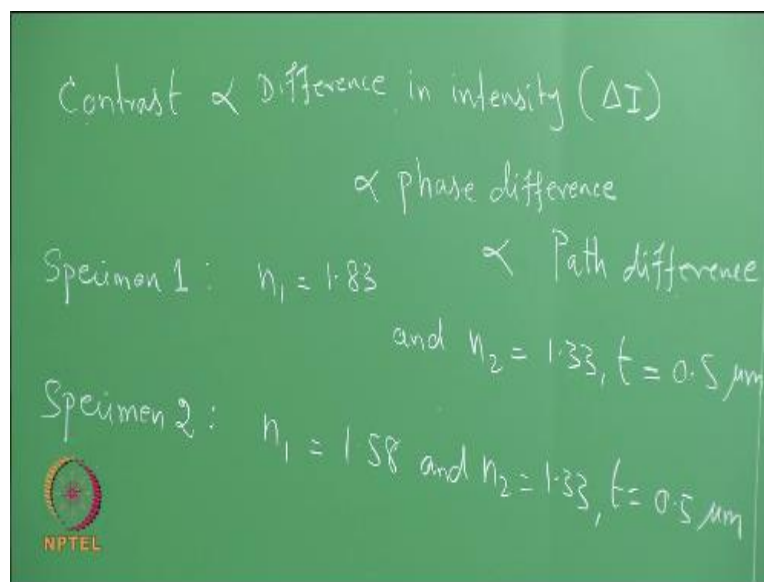 Contrast ∝ Difference in intensity (ΔI)
∝ phase difference
∝ Path difference
Specimen 1 : n₁ = 1.83
and n₂ = 1.33, t = 0.5 μm
Specimen 2 : n₁ = 1.58 and n₂ = 1.33, t = 0.5 μm
NPTEL